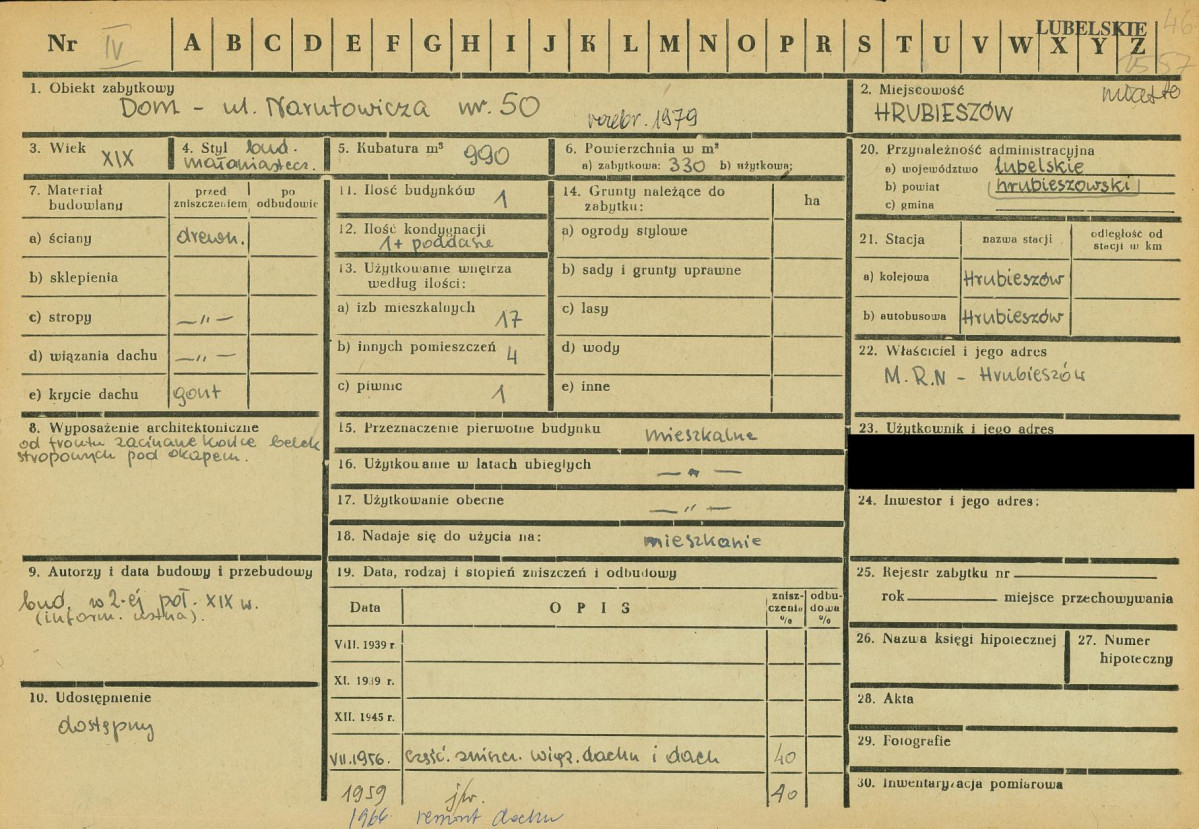 Nr IV A B C D E F G H I J K L M N O P R S T U V W X Y Z
LUBELSKIE
46
1. Obiekt zabytkowy
Dom - ul. Narutowicza nr. 50
rozebr. 1979
2. Miejscowość
miasto
HRUBIESZÓW
3. Wiek
XIX
4. Styl bud.
małomiastecz.
5. Kubatura m³ 990
6. Powierzchnia w m²
a) zabytkowa: 330 b) użytkowa:
7. Materiał budowlany
przed zniszczeniem
po odbudowie
a) ściany drewn.
b) sklepienia
c) stropy —„—
d) wiązania dachu —„—
e) krycie dachu gont
8. Wyposażenie architektoniczne
od frontu zacinane końce belek
stropowych pod okapem.
9. Autorzy i data budowy i przebudowy
bud. w 2-ej poł. XIX w.
(inform. ustna).
10. Udostępnienie
dostępny
11. Ilość budynków 1
12. Ilość kondygnacji
1 + poddasze
13. Użytkowanie wnętrza
według ilości:
a) izb mieszkalnych 17
b) innych pomieszczeń 4
c) piwnic 1
14. Grunty należące do
zabytku:
ha
a) ogrody stylowe
b) sady i grunty uprawne
c) lasy
d) wody
e) inne
15. Przeznaczenie pierwotne budynku mieszkalne
16. Użytkowanie w latach ubiegłych —„—
17. Użytkowanie obecne —„—
18. Nadaje się do użycia na: mieszkanie
19. Data, rodzaj i stopień zniszczeń i odbudowy
Data
OPIS
znisz-
czenia
%
odbu-
dowa
%
VIII. 1939 r.
XI. 1939 r.
XII. 1945 r.
VII.1956. część. zniszcz. wiąz. dachu i dach 40
1959 j/w. 40
1966 remont dachu
20. Przynależność administracyjna
a) województwo lubelskie
b) powiat hrubieszowski
c) gmina
21. Stacja
nazwa stacji
odległość od
stacji w km
a) kolejowa Hrubieszów
b) autobusowa Hrubieszów
22. Właściciel i jego adres
M.R.N - Hrubieszów
23. Użytkownik i jego adres
24. Inwestor i jego adres:
25. Rejestr zabytku nr
rok miejsce przechowywania
26. Nazwa księgi hipotecznej
27. Numer
hipoteczny
28. Akta
29. Fotografie
30. Inwentaryzacja pomiarowa